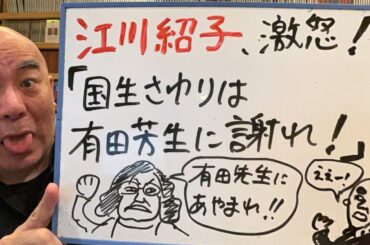 江川紹子、激怒!
「国生さゆりは
有田芳生に謝れ!」
有田先生に
あやまれ!!
ええー!